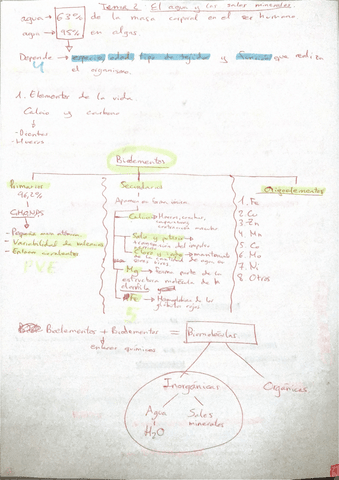 Tema 2. El agua y las sales minerales.
agua → 63% de la masa corporal en el ser humano
agua → 95% en algas.
Depende → especie, edad, tipo de tejido y función que realiza
4 el organismo.
1. Elementos de la vida.
Calcio y carbono
- Dientes
- Huesos
Bioelementos
Primarios
96,2%
CHONPS
- Pequeña masa atómica
- Variabilidad de valencias
- Enlaces covalentes
PVE
Secundarios
Aparecen forma iónica
Calcio → Huesos, conchas,
contracción muscular
Sodio y potasio →
transmisión del impulso
Cloro y → mantenimiento
de la cantidad de agua en
seres vivos
Mg → Forma parte de la
estructura molécula de la
clorofila
Fe → Hemoglobina de los
glóbulos rojos
5
Oligoelementos
1. Fe
2. Cu
3. Zn
4. Mn
5. Co
6. Mo
7. Ni
8. Otros
Bioelementos + Bioelementos = Biomoléculas
enlaces químicos
Inorgánicas
Orgánicas
Agua
Sales
H₂O
minerales